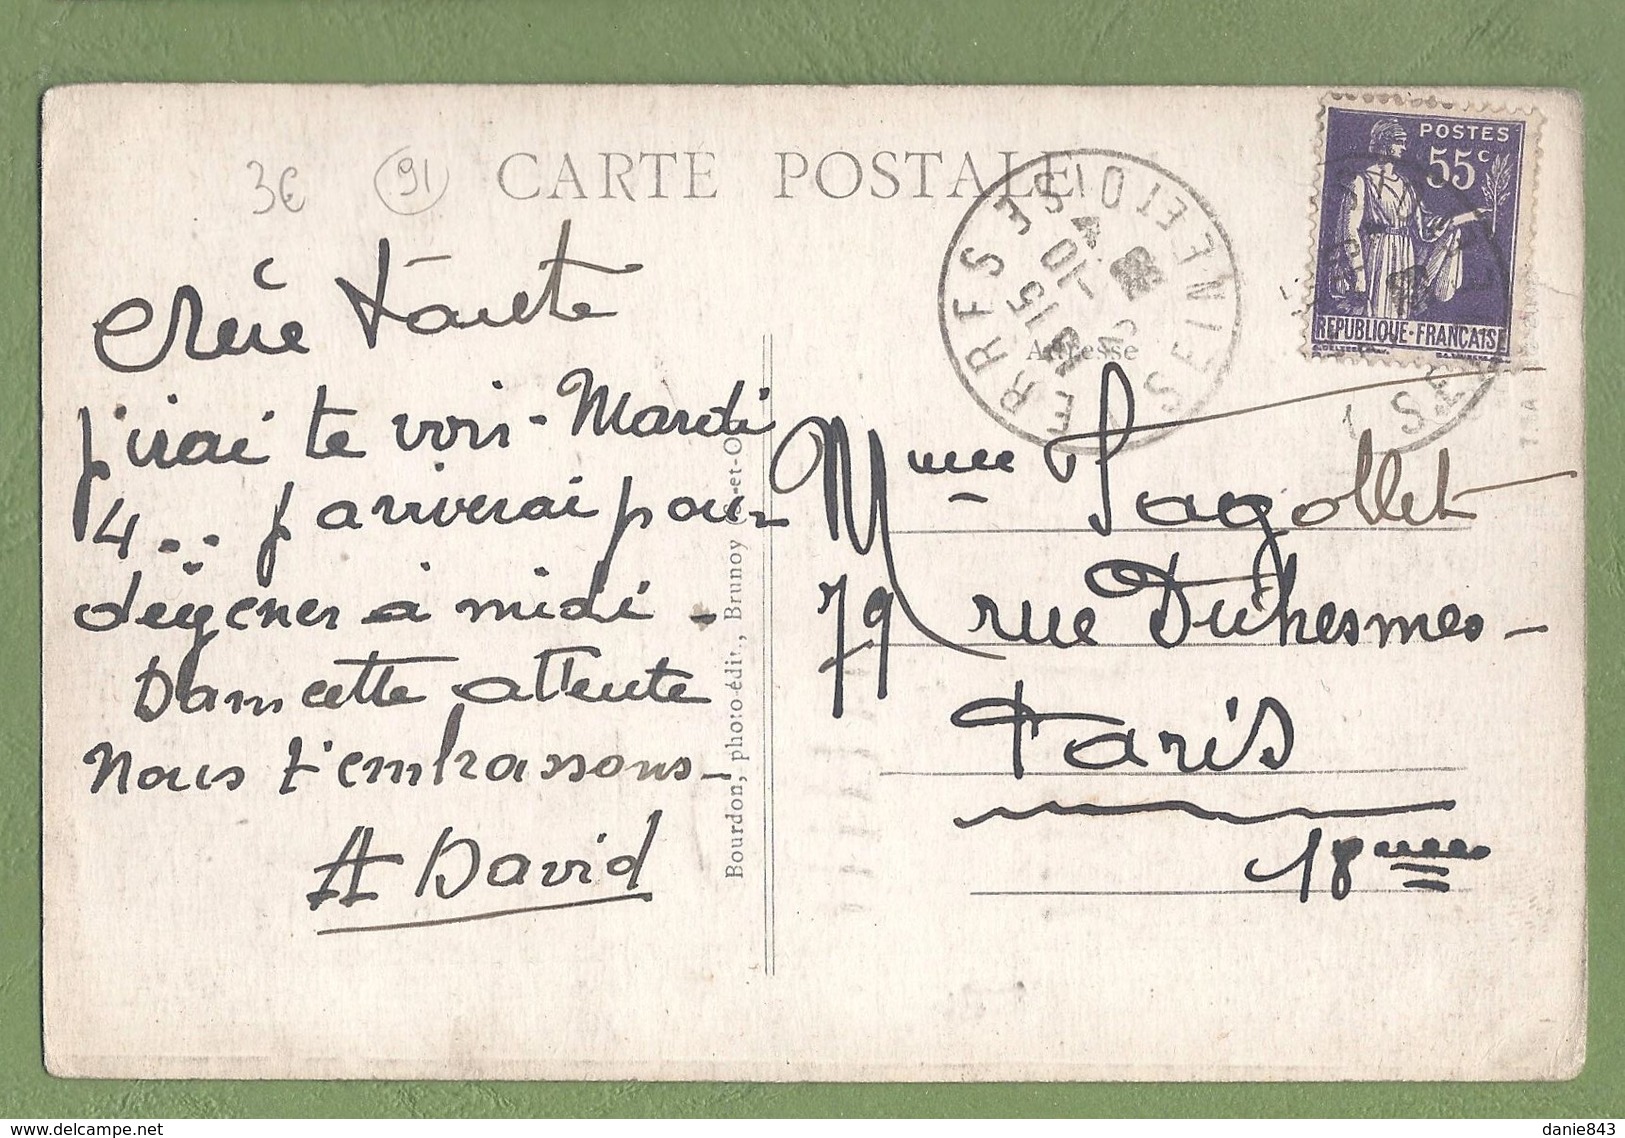 3€ 91 CARTE POSTALE
POSTES
55c
REPUBLIQUE-FRANÇAISE
YERRES
SEINE ET OISE
1815
4-10
Adresse
Chère tante
j'irai te voir - Mardi
4.. j arriverai pour
déjeuner à midi -
Dans cette attente
nous t'embrassons -
A David
Bourdon, photo-édit., Brunoy (S.-et-O
Mme Pagollet
79 rue Duhesmes -
Paris
18eme
danie843
delcampe.net